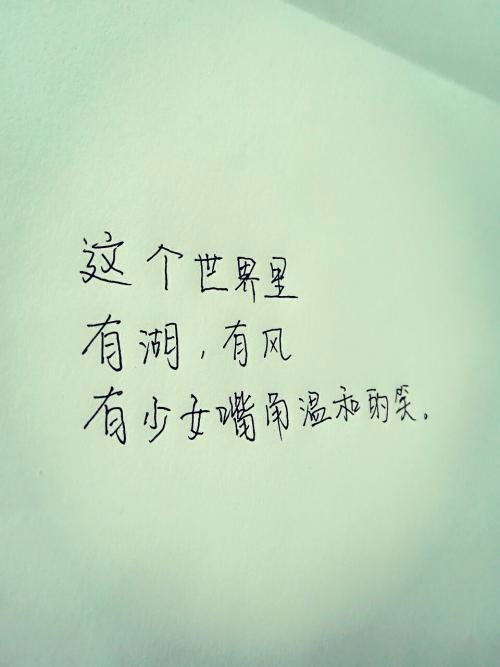 这个世界里
有湖，有风
有少女嘴角温和的笑。